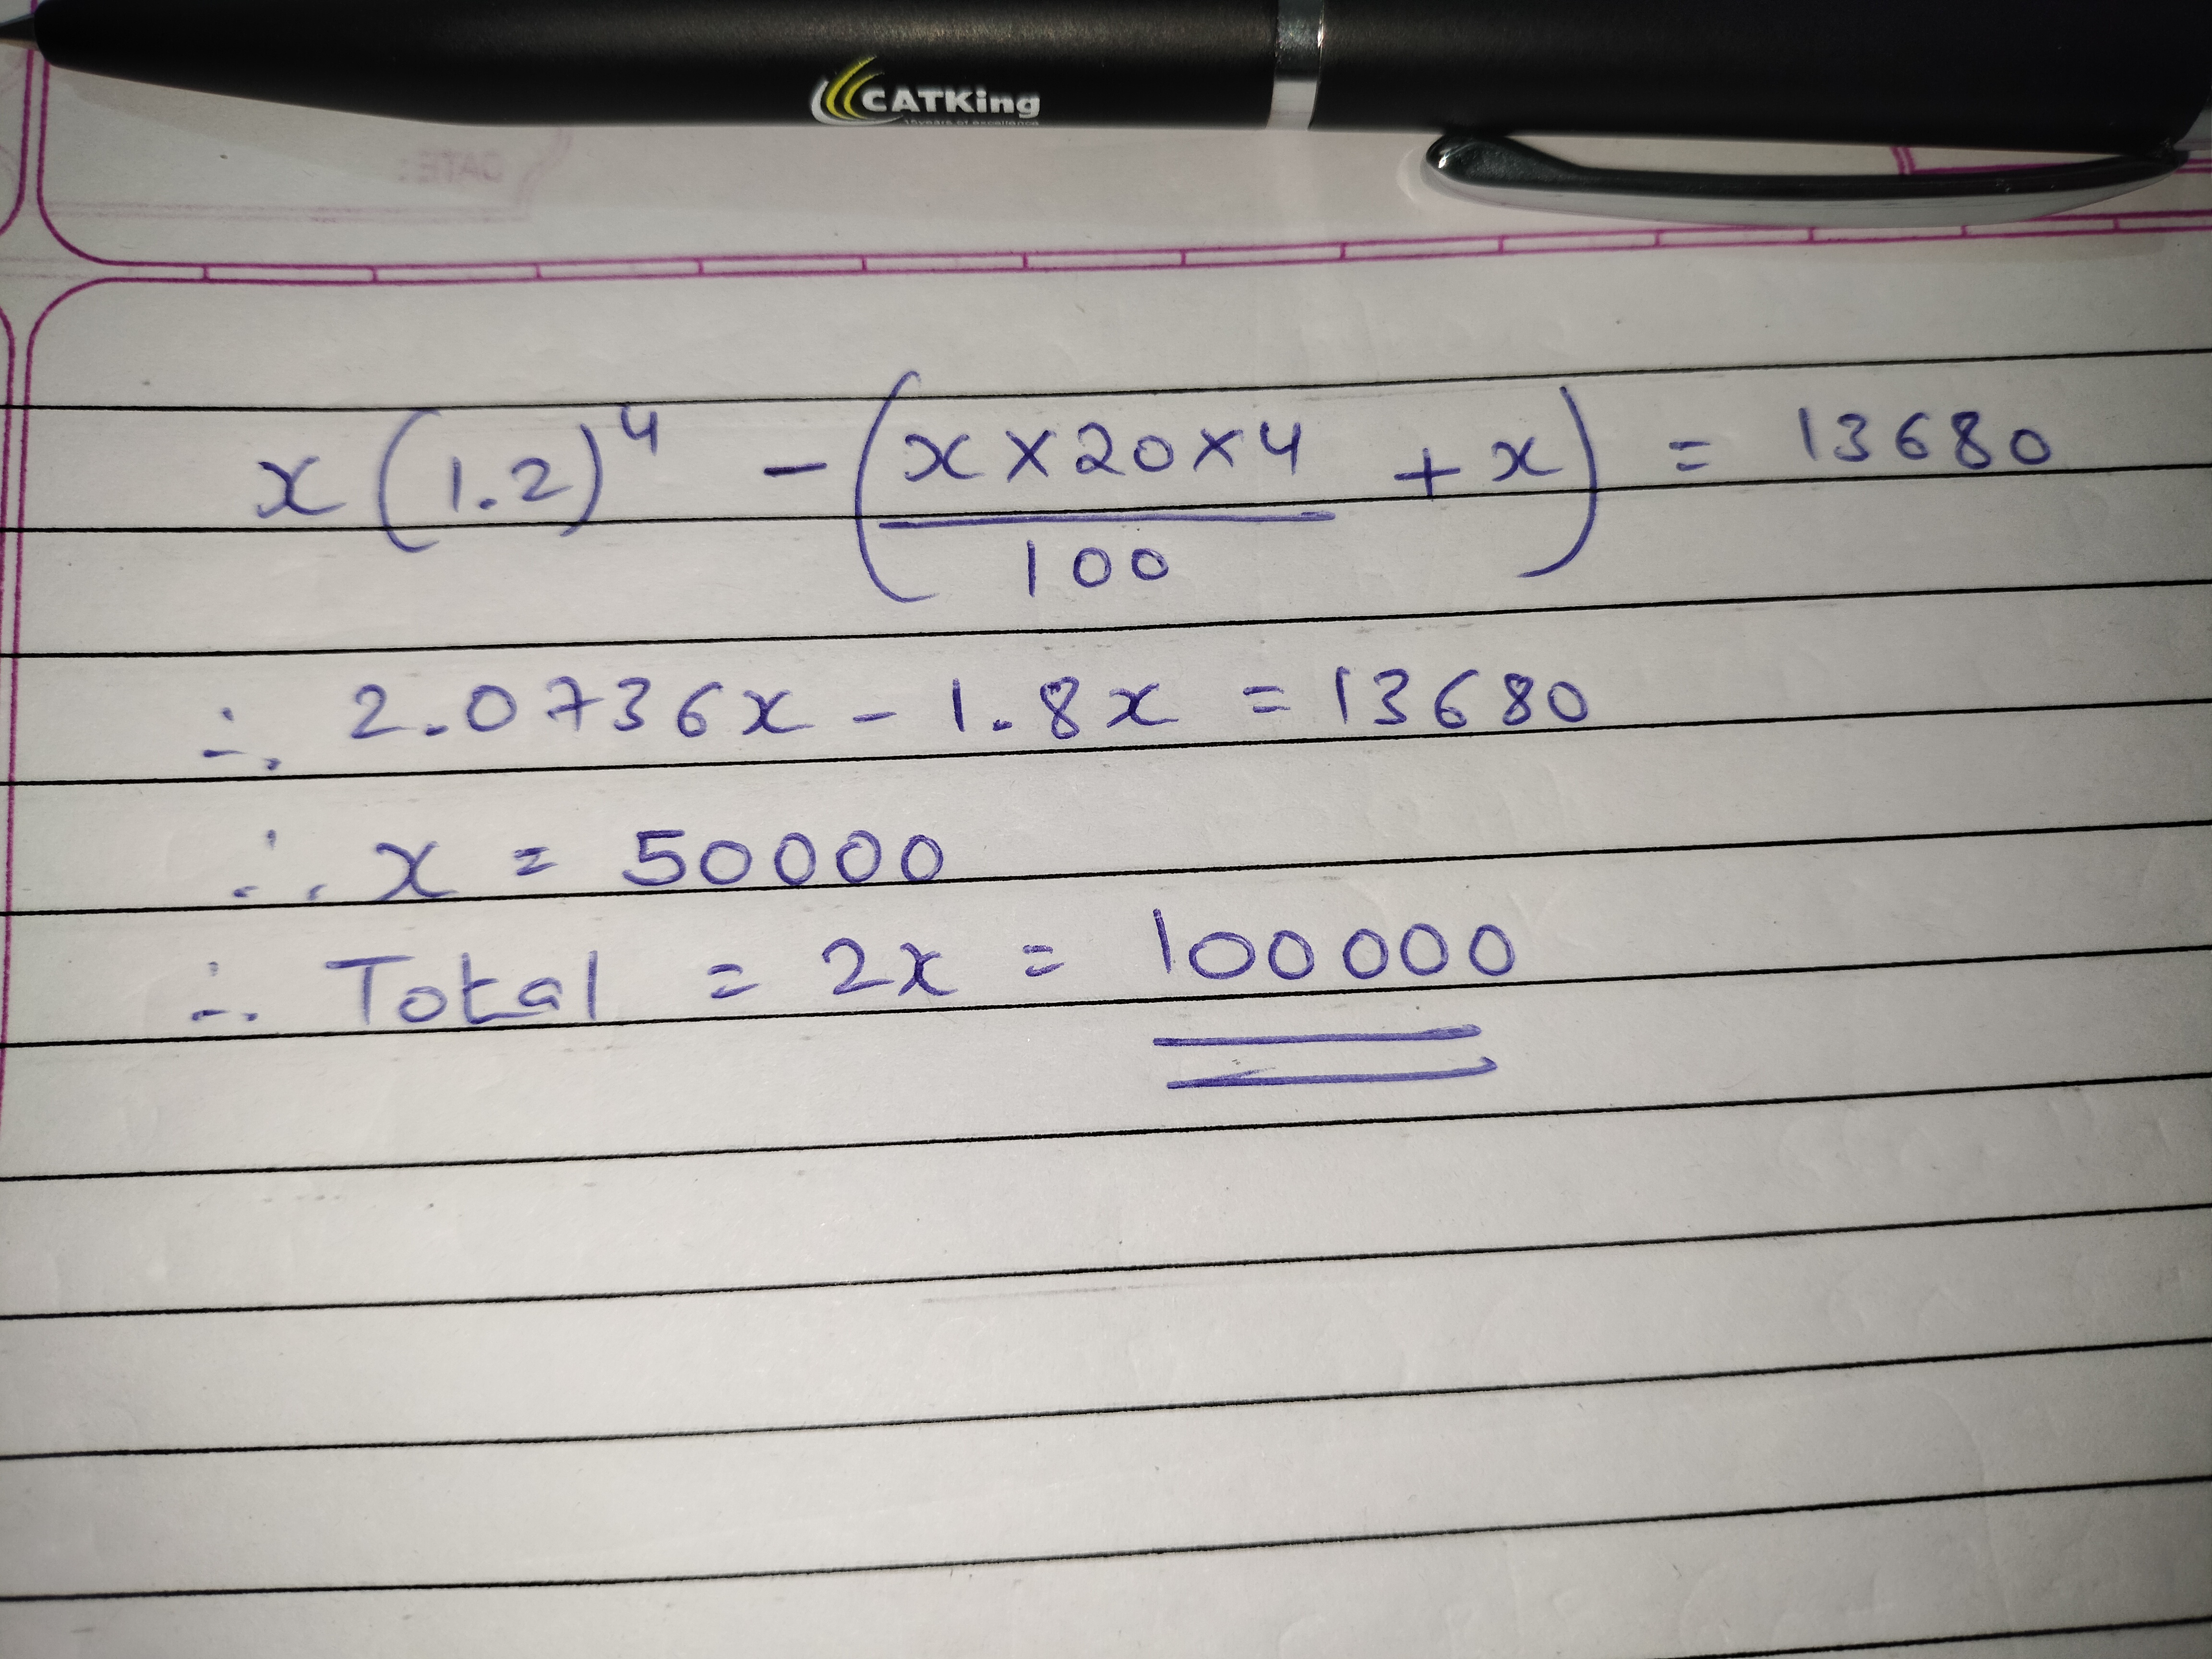 CATKing
15years of excellence
DATE:
x(1.2)⁴ - (x×20×4/100 + x) = 13680
∴ 2.0736x - 1.8x = 13680
∴ x = 50000
∴ Total = 2x = 100000